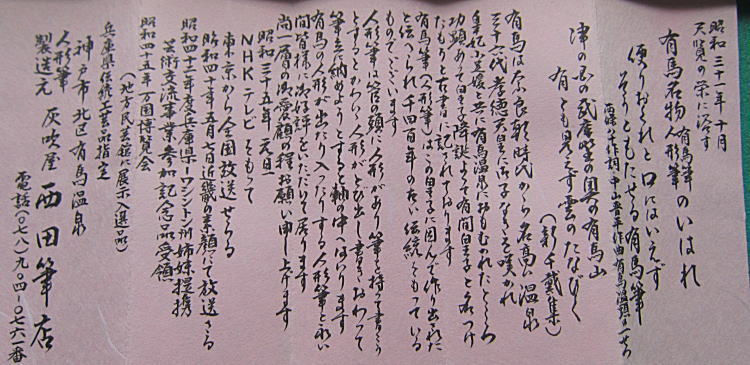 昭和三十一年十月
天覧の栄に浴す
有馬名物 有馬筆 人形筆 のいはれ
便りおくれと口にはいえず
そうともたせる有馬筆
西條八十作詞 中山晋平作曲 有馬温泉の一せつ
津の国の武庫野の奥の有馬山
有とも見えず雲のたなびく
(新千載集)
有馬は奈良朝時代から名高い温泉
三十六代孝徳天皇に御子なきを嘆かれ
皇妃小足媛と共に有馬温泉におもむかれたところ
功顕あって皇子降誕よって有間皇子と名つけ
たもうたと古書に記されております
有馬筆(人形筆)はこの皇子に因んで作り出された
と伝へられ千四百年の古い伝統をもっている
ものでございます
人形筆は管の頭に人形があり筆を持って書こう
とするとかわいい人形がとび出し書きおわって
筆を立に納めようとすると軸の中へはいります
有馬の人形が出たり入ったりする人形筆と永い
間皆様に御好評をいただいて居ります
尚一層の御愛顧の程お願い申し上げます
昭和三十五年一元旦
NHKテレビをもって
東京から全国放送せらる
昭和四十年五月七日近畿の素顔にて放送さる
昭和四十一年度兵庫県ワシントン州姉妹提携
芸術交流事業参加記念品受領
昭和四十五年万国博覧会
(地方民芸館に展示入選品)
兵庫県伝統工芸品指定
神戸市北区有馬温泉
人形筆
製造元 灰吹屋 西田筆店
電話(〇七八)九〇四-〇七六一番